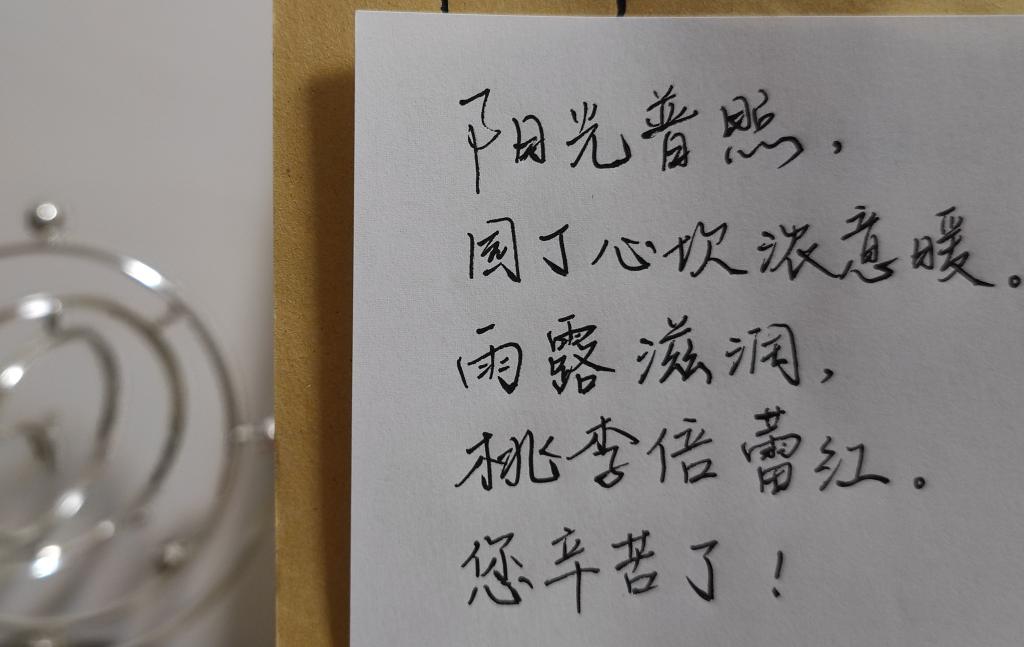 阳光普照，
园丁心坎浓意暖。
雨露滋润，
桃李倍蕾红。
您辛苦了！